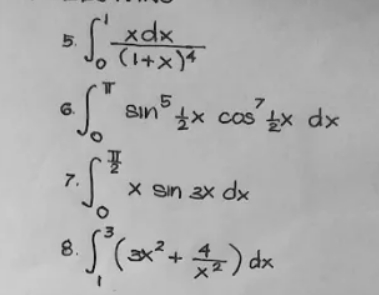 5. ∫₀¹ xdx / (1+x)⁴
6. ∫₀^π sin⁵ ½x cos⁷ ½x dx
7. ∫₀^(π/2) x sin 3x dx
8. ∫₁³ (3x² + 4/x²) dx